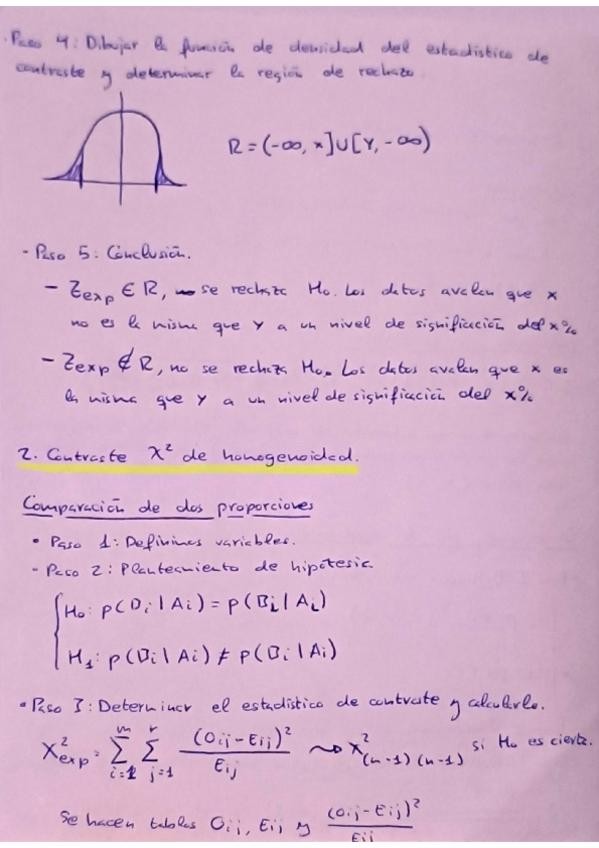 · Paso 4: Dibujar la función de densidad del estadístico de
contraste y determinar la región de rechazo
R = (-∞, x] U [Y, -∞)
- Paso 5: Conclusión.
- Zexp ∈ R, se rechaza H₀. Los datos avalan que x
no es la misma que Y a un nivel de significación del x%
- Zexp ∉ R, no se rechaza H₀. Los datos avalan que x es
la misma que Y a un nivel de significación del x%
2. Contraste X² de homogenoidad.
Comparación de dos proporciones
• Paso 1: Definimos variables.
- Paso 2: Planteamiento de hipótesis.
H₀: p(Bi | Ai) = p(Bi | Ai)
H₁: p(Bi | Ai) ≠ p(Bi | Ai)
• Paso 3: Determinar el estadístico de contraste y calcularlo.
X²exp = Σ(i=1, m) Σ(j=1, r) (Oij - Eij)² / Eij ~> X²(n-1)(n-1) si H₀ es cierta.
Se hacen tablas Oij, Eij y (Oij - Eij)² / Eij